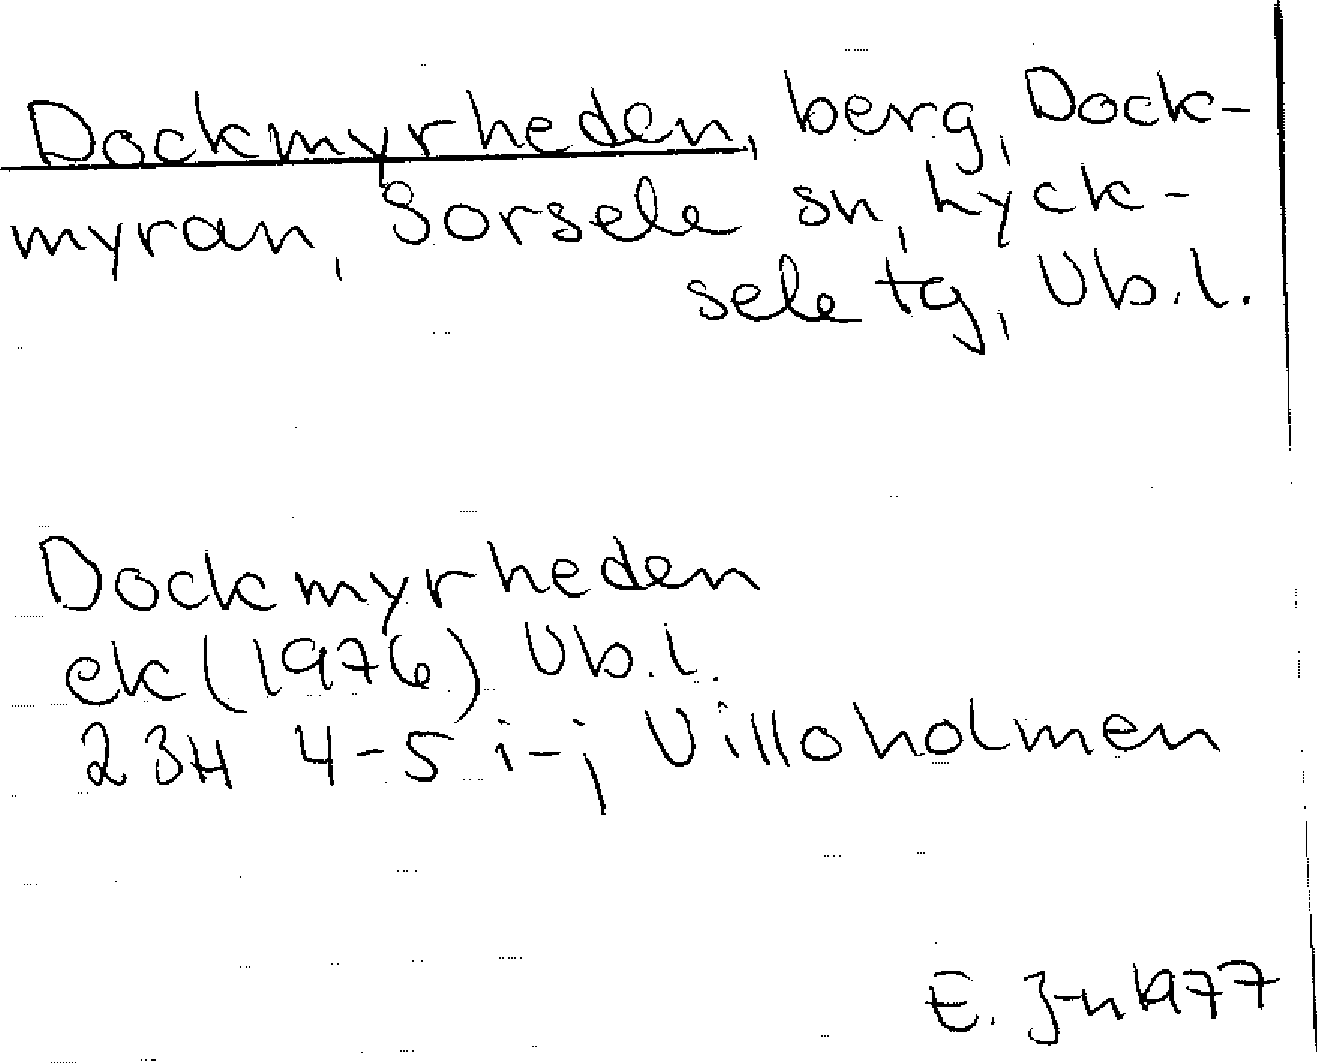 Dockmyrheden, berg, Dock-
myran, Sorsele sn, Lyck-
sele tg, Vb.l.
Dockmyrheden
ek (1976) Vb.l.
23H 4-5 i-j Villoholmen
E. J-n 1977